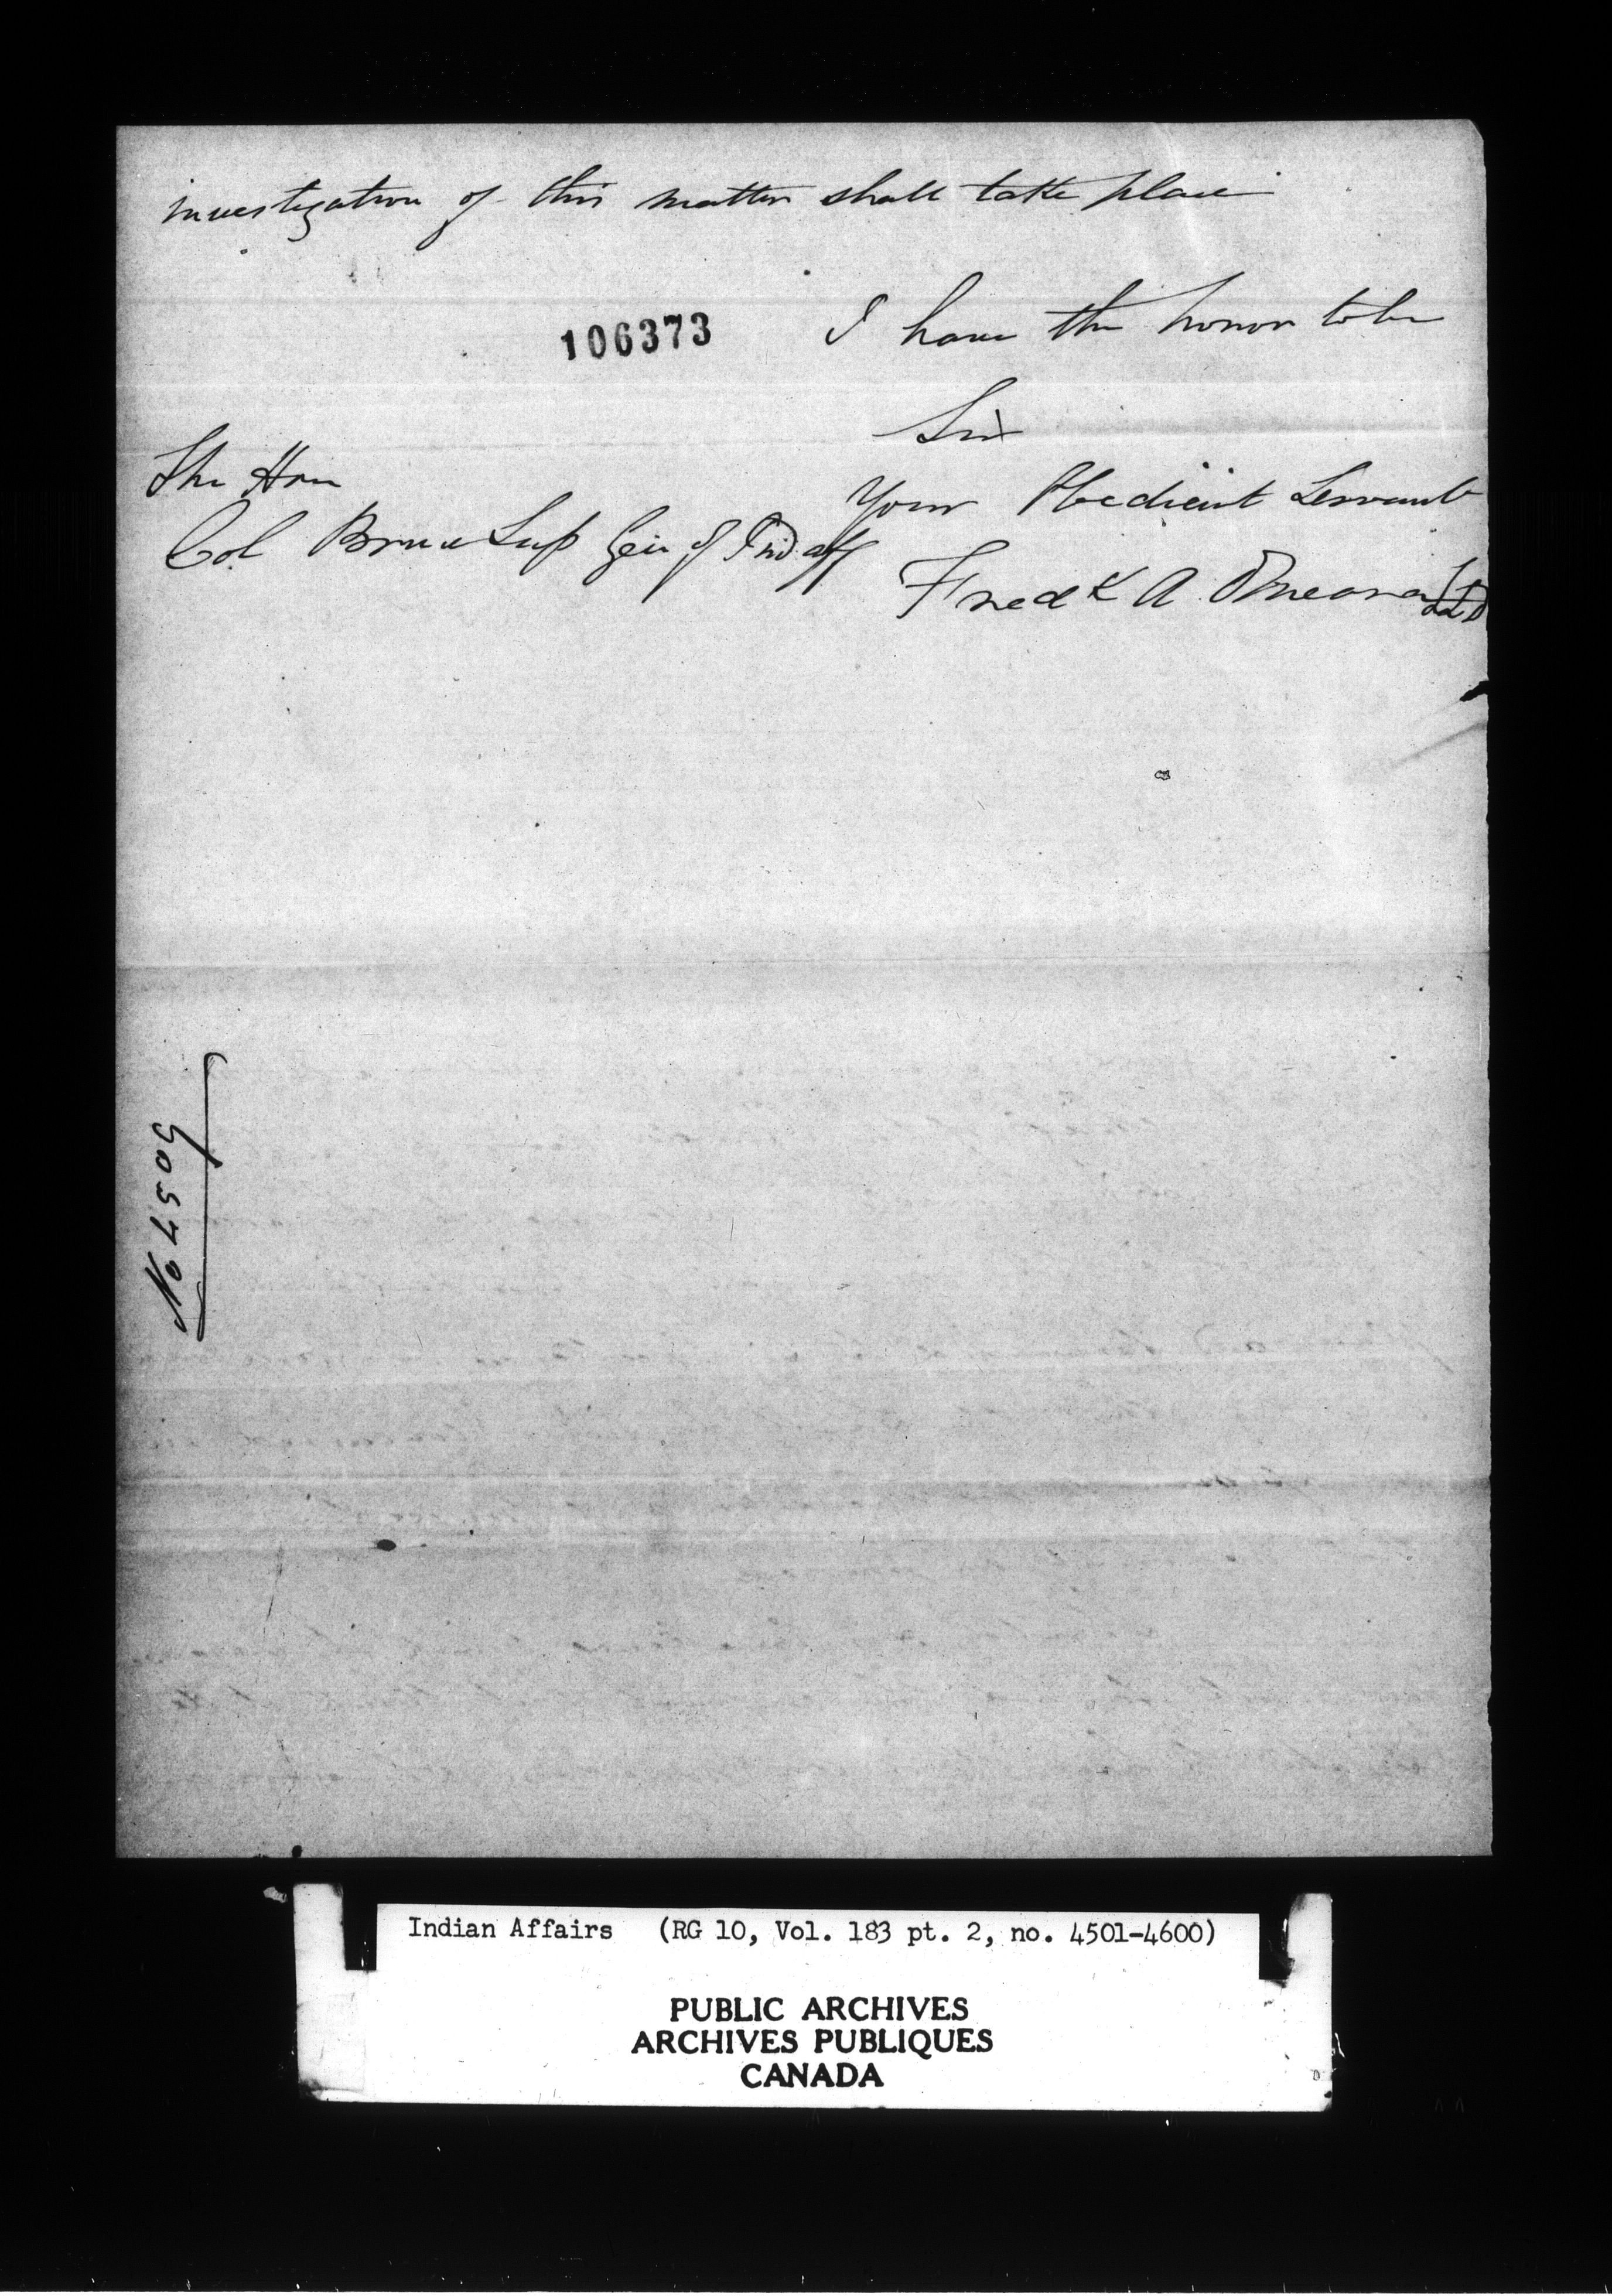 investigation of this matter shall take place
106373
I have the honor to be
Sir
Your Obedient Servant
Fredk A. OMeara LLD
The Hon
Col Bruce Sup Gen of Ind. aff
No 4509
Indian Affairs (RG 10, Vol. 183 pt. 2, no. 4501-4600)
PUBLIC ARCHIVES
ARCHIVES PUBLIQUES
CANADA